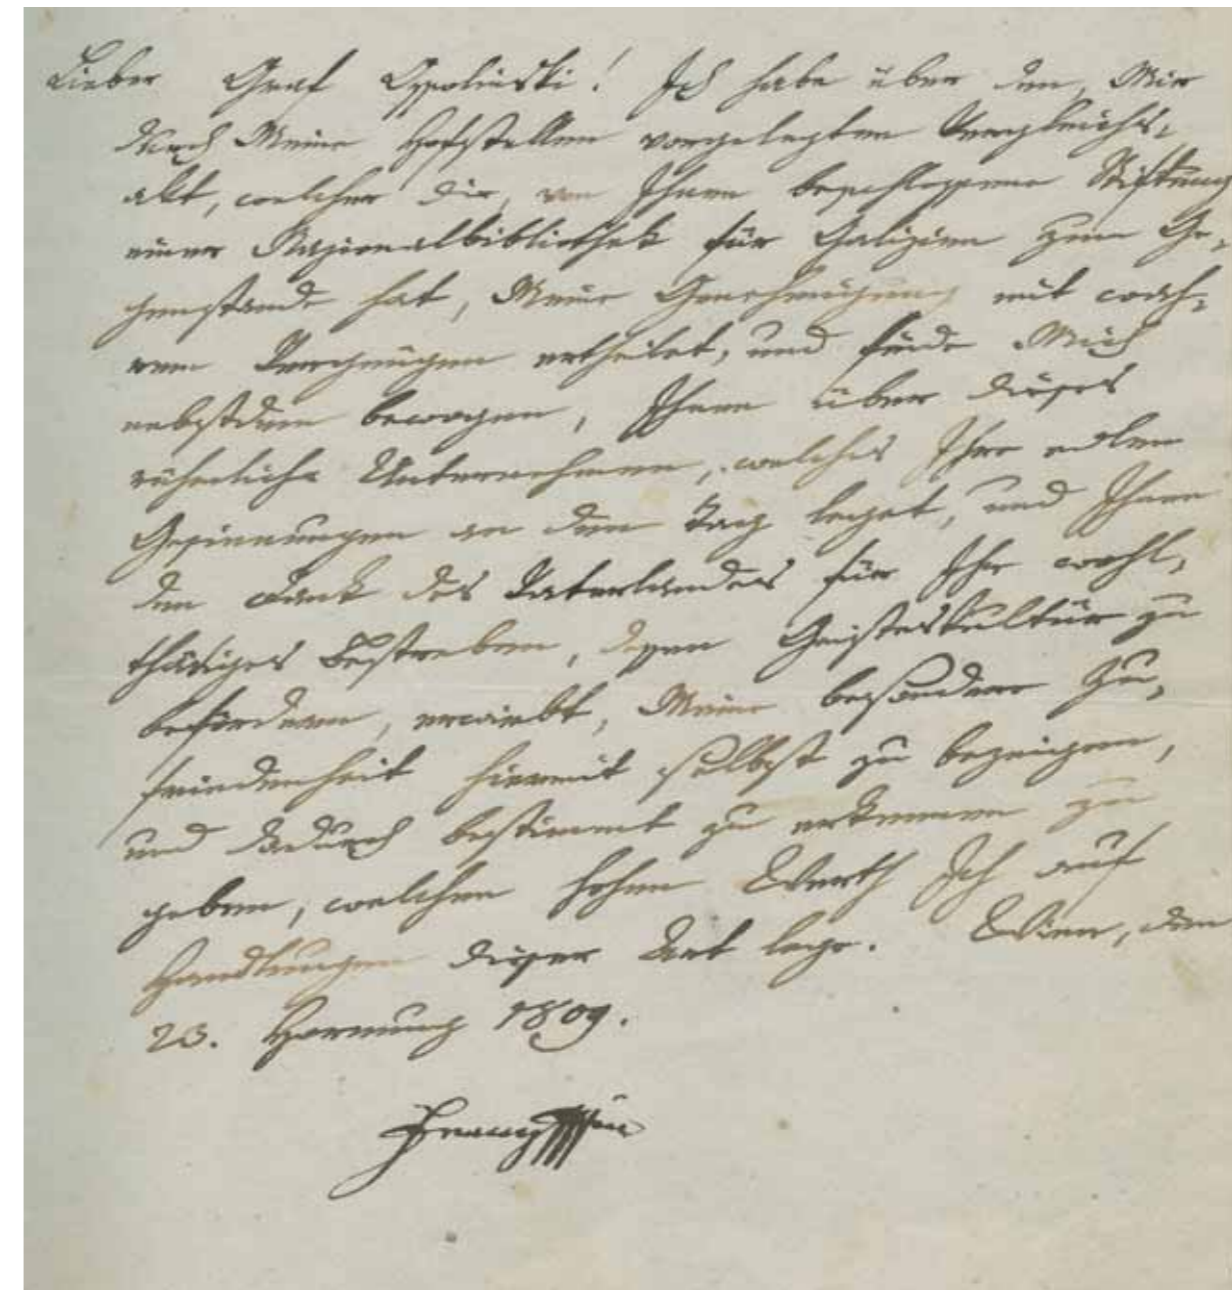 Lieber Graf Ossolinski! Ich habe über den, Mir
durch Meine Hofstellen vorgelegten Vergleichs-
akt, welcher die, von Ihnen beschlossene Stiftung
einer Nazionalbibliothek für Galizien zum Ge-
genstande hat, Meine Genehmigung mit wah-
rem Vergnügen ertheilet, und finde Mich
nebstdem bewogen, Ihnen über dieses
rühmliche Unternehmen, welches Ihre edlen
Gesinnungen an den Tag leget, und Ihnen
den Dank des Vaterlandes für Ihr wohl-
thätiges Bestreben, dessen Geisteskultur zu
befördern, erwirbt, Meine besondere Zu-
friedenheit hiermit selbst zu bezeigen,
und dadurch bestimmt zu erkennen zu
geben, welchen hohen Werth Ich auf
Handlungen dieser Art lege. Wien, den
23. Hornung 1809.
Franz